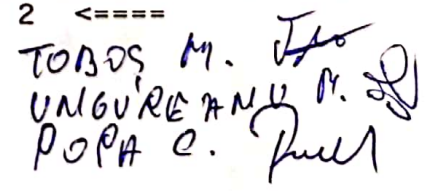 2 <====
TOBOȘ M.
UNGUREANU M.
POPA C.